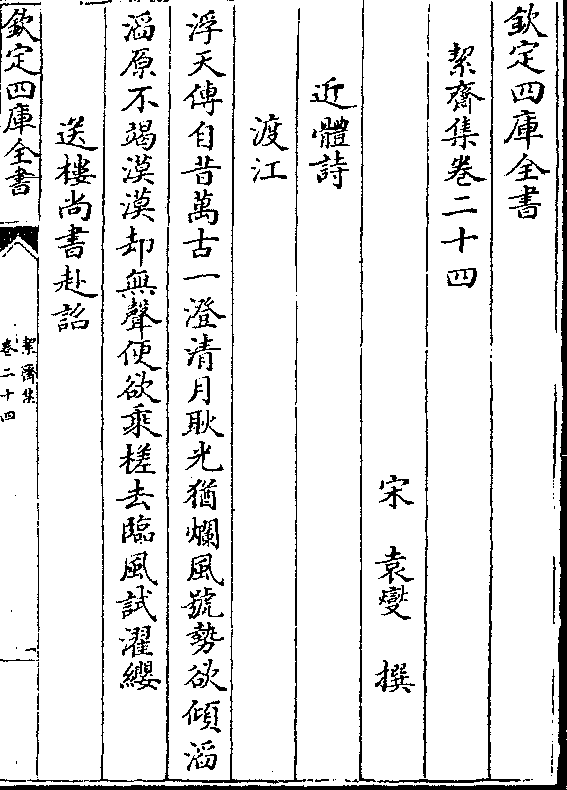 欽定四庫全書
絜齋集卷二十四
宋　袁燮　撰
近體詩
渡江
浮天傳自昔萬古一澄清月耿光猶爛風號勢欲傾滔
滔原不竭漠漠却無聲便欲乘槎去臨風試濯纓
送樓尚書赴詔
欽定四庫全書
絜齋集
卷二十四